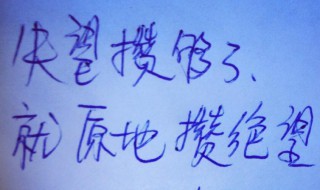 失望攒够了、
就原地攒绝望